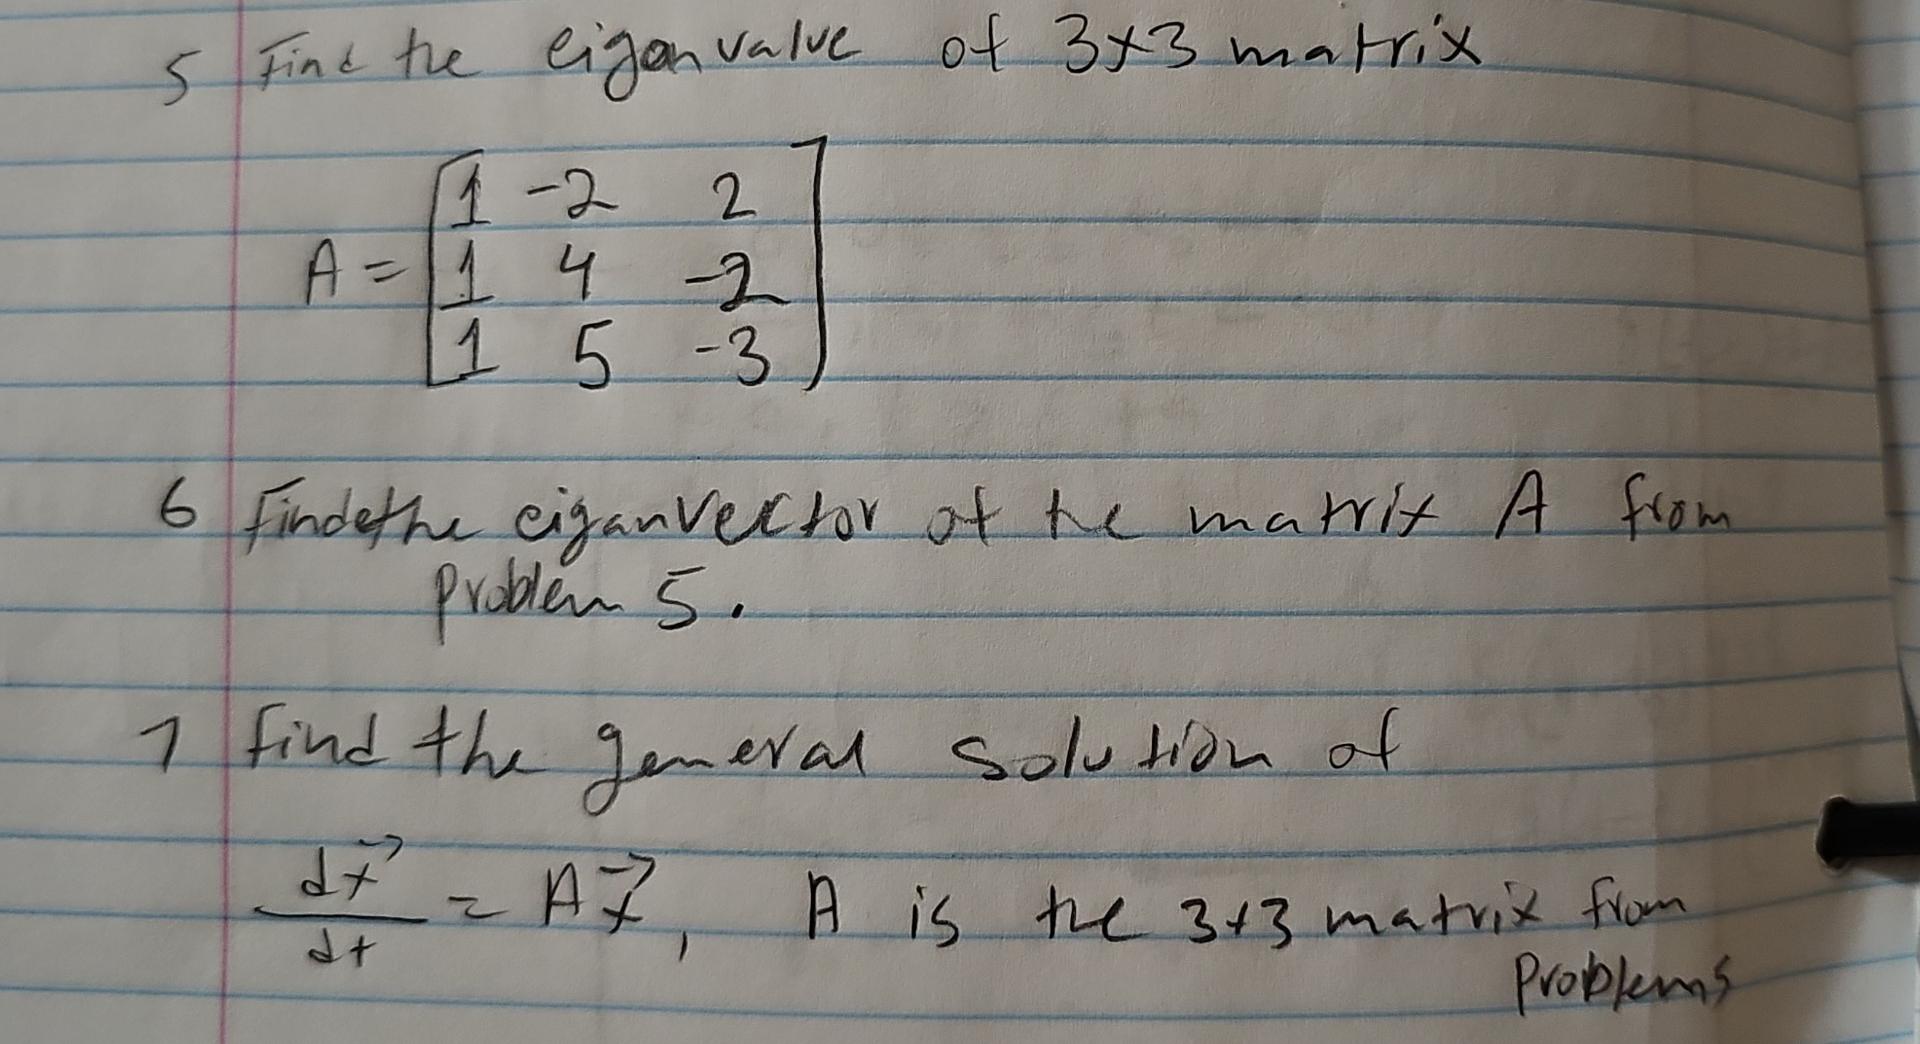 5 Find the eigenvalue of 3x3 matrix
A = [1 -2 2
1 4 -2
1 5 -3]
6 Findethe eiganvector of the matrix A from
problem 5.
7 find the general solution of
dx⃗/dt = Ax⃗, A is the 3x3 matrix from
problem5